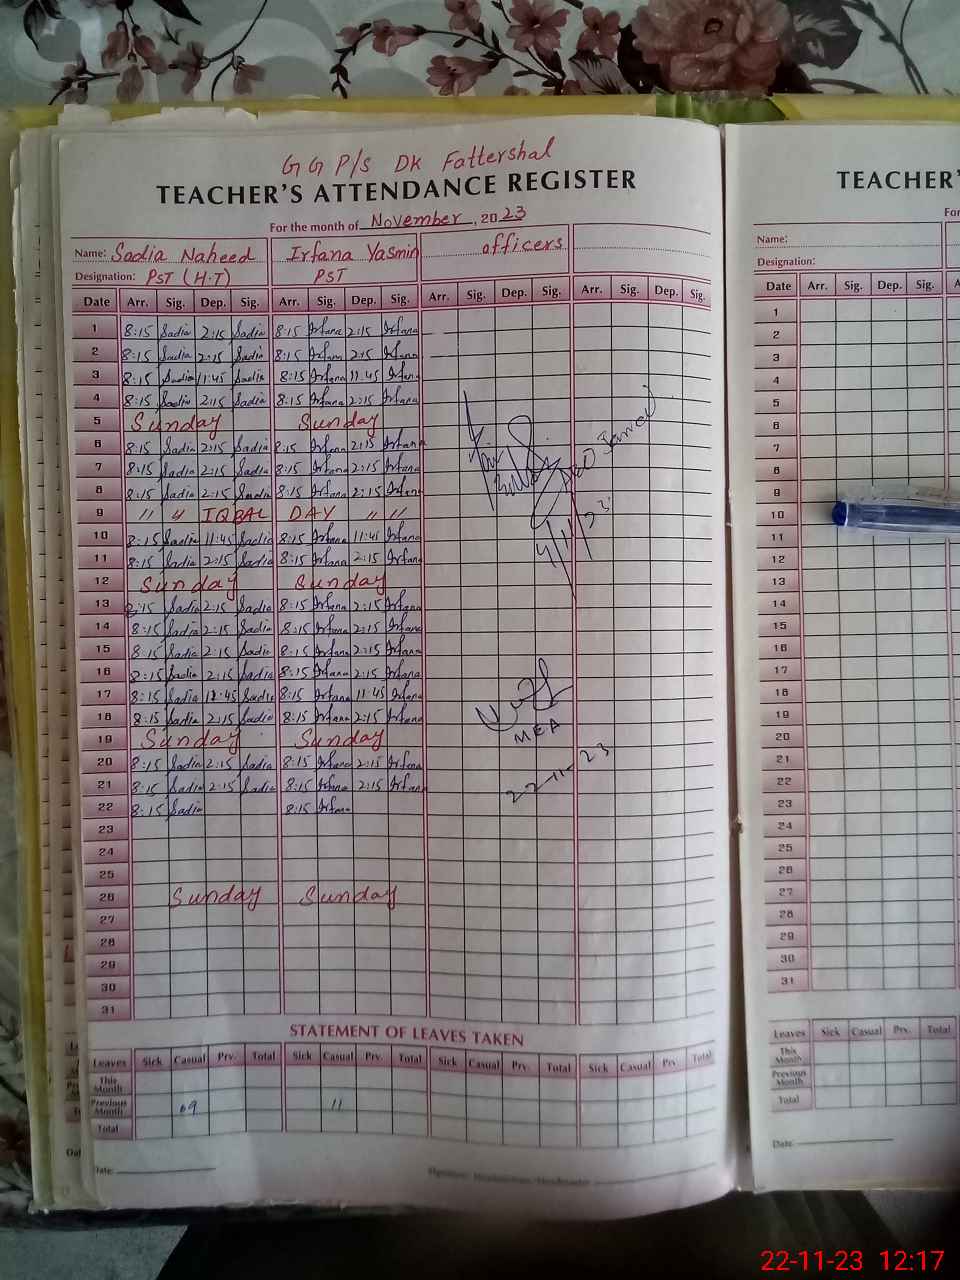 G G P/S DK Fattershal
TEACHER'S ATTENDANCE REGISTER
For the month of November, 2023
Name: Sadia Naheed Irfana Yasmin officers
Designation: PST (H.T) PST
Date Arr. Sig. Dep. Sig. Arr. Sig. Dep. Sig. Arr. Sig. Dep. Sig. Arr. Sig. Dep. Sig.
1 8:15 Sadia 2:15 Sadia 8:15 Irfana 2:15 Irfana
2 8:15 Sadia 2:15 Sadia 8:15 Irfana 2:15 Irfana
3 8:15 Sadia 11:45 Sadia 8:15 Irfana 11:45 Irfana
4 8:15 Sadia 2:15 Sadia 8:15 Irfana 2:15 Irfana
5 Sunday Sunday
6 8:15 Sadia 2:15 Sadia 8:15 Irfana 2:15 Irfana
7 8:15 Sadia 2:15 Sadia 8:15 Irfana 2:15 Irfana
8 8:15 Sadia 2:15 Sadia 8:15 Irfana 2:15 Irfana
9 " " IQBAL DAY " "
10 8:15 Sadia 11:45 Sadia 8:15 Irfana 11:45 Irfana
11 8:15 Sadia 2:15 Sadia 8:15 Irfana 2:15 Irfana
12 Sunday Sunday
13 8:15 Sadia 2:15 Sadia 8:15 Irfana 2:15 Irfana
14 8:15 Sadia 2:15 Sadia 8:15 Irfana 2:15 Irfana
15 8:15 Sadia 2:15 Sadia 8:15 Irfana 2:15 Irfana
16 8:15 Sadia 2:15 Sadia 8:15 Irfana 2:15 Irfana
17 8:15 Sadia 11:45 Sadia 8:15 Irfana 11:45 Irfana
18 8:15 Sadia 2:15 Sadia 8:15 Irfana 2:15 Irfana
MEA
19 Sunday Sunday
20 8:15 Sadia 2:15 Sadia 8:15 Irfana 2:15 Irfana
21 8:15 Sadia 2:15 Sadia 8:15 Irfana 2:15 Irfana
22-11-23
22 8:15 Sadia 8:15 Irfana
23
24
25
26 Sunday Sunday
27
28
29
30
31
STATEMENT OF LEAVES TAKEN
Leaves Sick Casual Prv. Total Sick Casual Prv. Total Sick Casual Prv. Total Sick Casual Prv. Total
This Month
Previous Month 09 11
Total
Date:
TEACHER'
Name:
Designation:
Date Arr. Sig. Dep. Sig.
1
2
3
4
5
6
7
8
9
10
11
12
13
14
15
16
17
18
19
20
21
22
23
24
25
26
27
28
29
30
31
Leaves Sick Casual Prv. Total
This Month
Previous Month
Total
Date
22-11-23 12:17